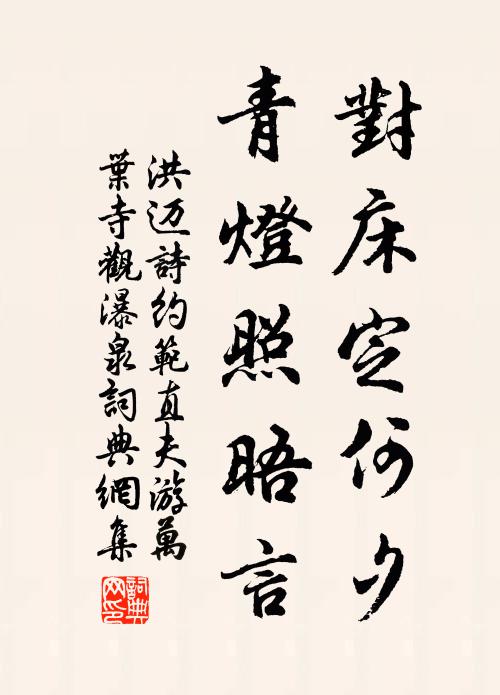 對床定何夕
青燈照晤言
洪迈詩约範直夫游萬
葉寺觀瀑泉詞典網集
詞典
网印